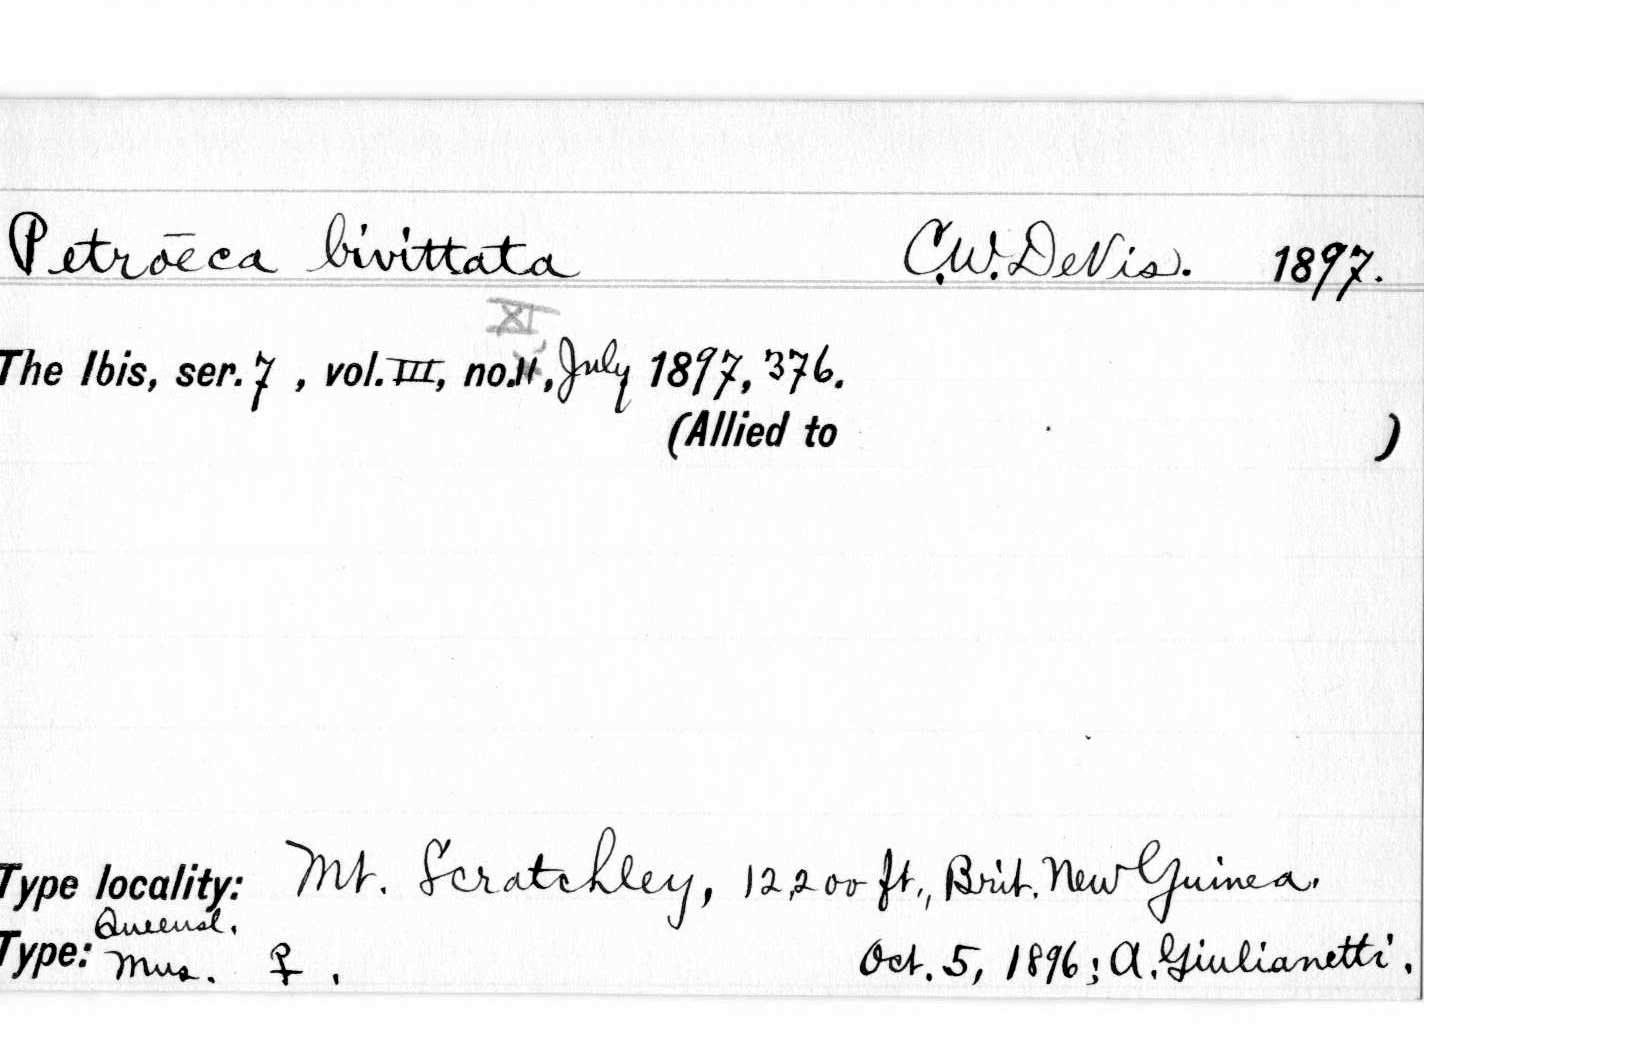 Petroēca bivittata C.W. DeVis. 1897.
XI
The Ibis, ser. 7, vol. III, no. 11, July 1897, 376.
(Allied to )
Type locality: Mt. Scratchley, 12,200 ft., Brit. New Guinea.
Queensl.
Type: Mus. ♀. Oct. 5, 1896; A. Giulianetti.